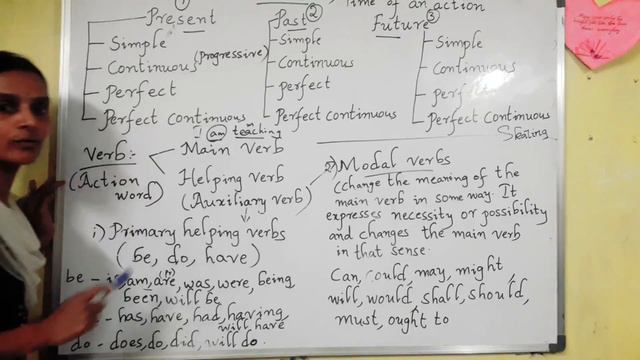 ① ②
Time of an action
Present Past Future ③
Simple Simple Simple
Continuous (Progressive) Continuous Continuous
Perfect perfect perfect
Perfect continuous Perfect continuous Perfect continuous
I am teaching
Skating
Verb:- Main verb
(Action word)
Helping verb
(Auxiliary verb)
i) Primary helping verbs
(be, do, have)
be - is, am, are, was, were, being
been, will be
- has, have, had, having
will have
do - does, do, did, will do.
2) Modal verbs
(change the meaning of the
main verb in some way. It
expresses necessity or possibility
and changes the main verb
in that sense.
Can, could, may, might,
will, would, shall, should,
must, ought to